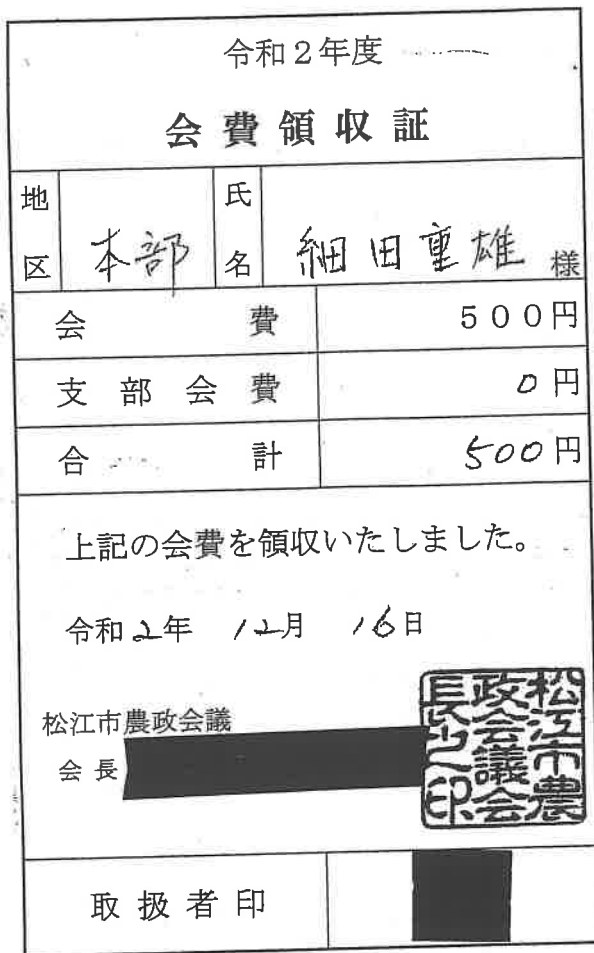 令和2年度
会費領収証
地区 本部 氏名 細田重雄 様
会費 500円
支部会費 0円
合計 500円
上記の会費を領収いたしました。
令和2年 12月 16日
松江市農政会議
会長
松江市農政会議会長之印
取扱者印